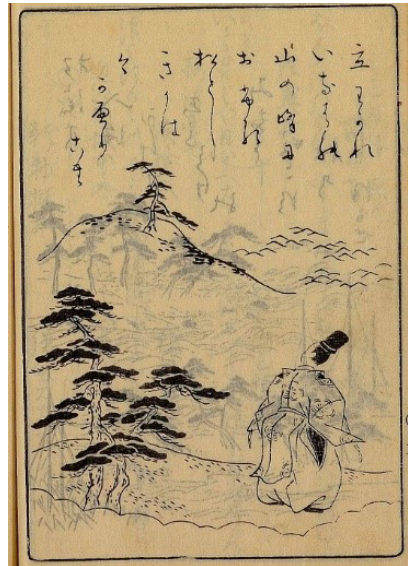 立わかれ
いなはの
山の峰に
おふる
松とし
きかは
今
かへりこむ